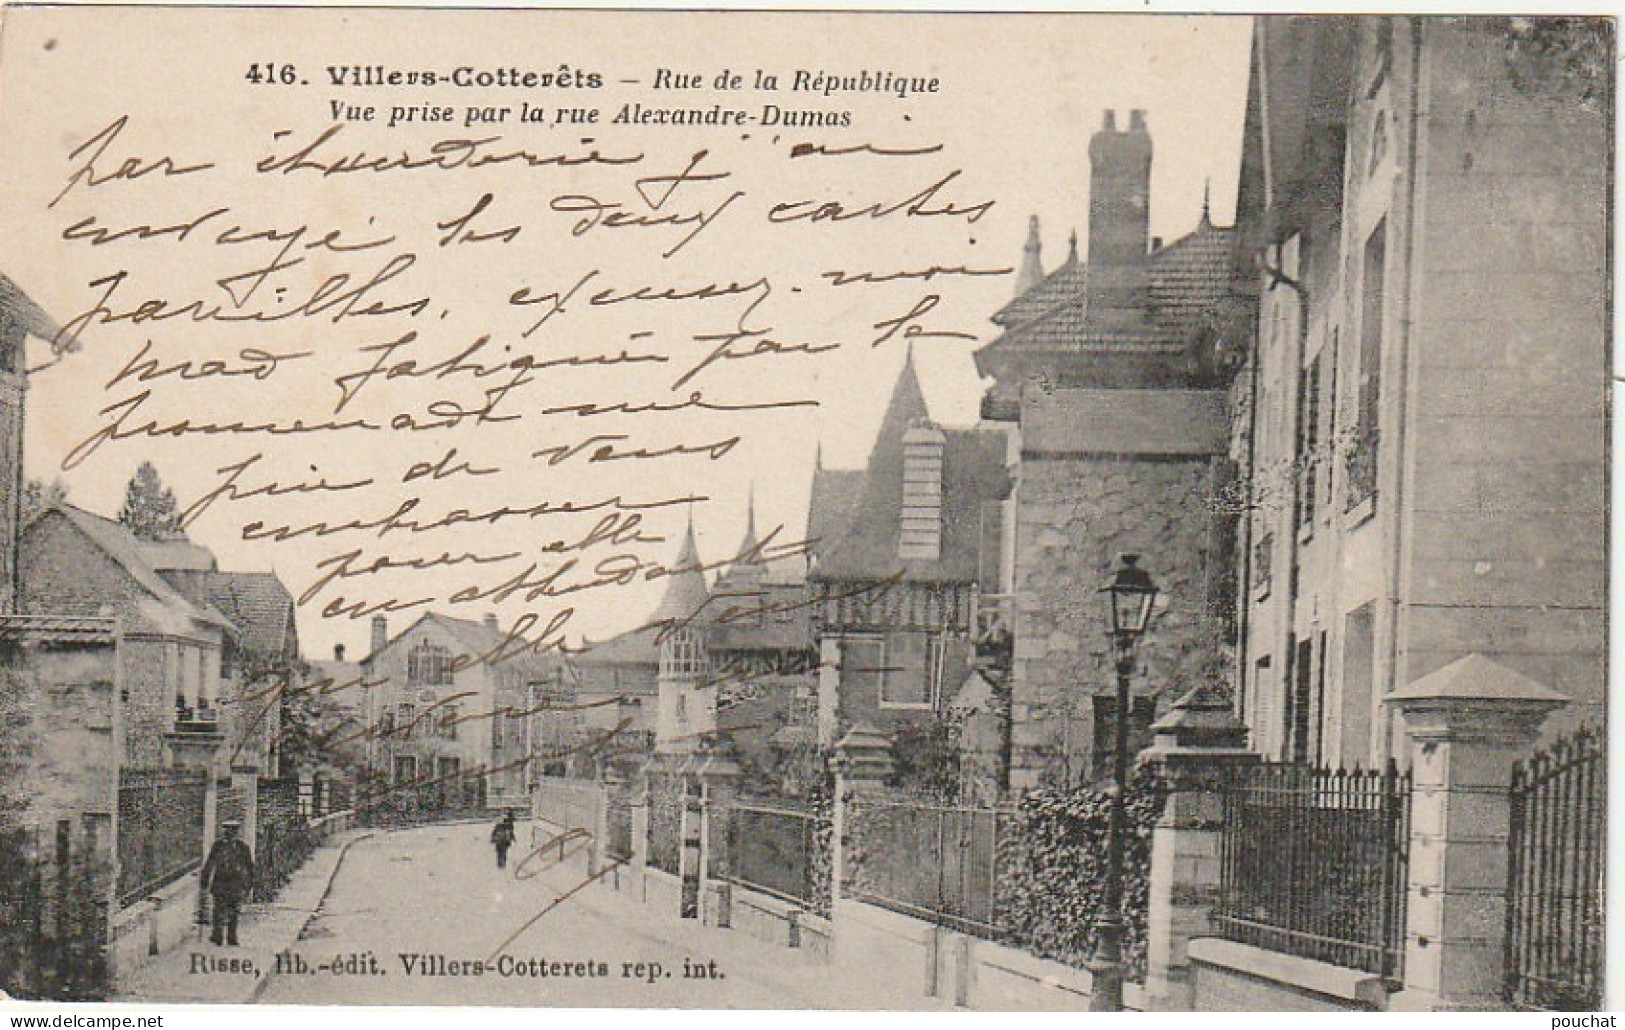 416. Villers-Cotterêts — Rue de la République
Vue prise par la rue Alexandre-Dumas
par étourderie j'ai
envoyé les deux cartes
pareilles, excusez-moi
mad fatiguée par la
promenade me
prie de vous
embrasser
pour elle
en attendant
qu elle vous
Risse, lib.-édit. Villers-Cotterets rep. int.
pouchat